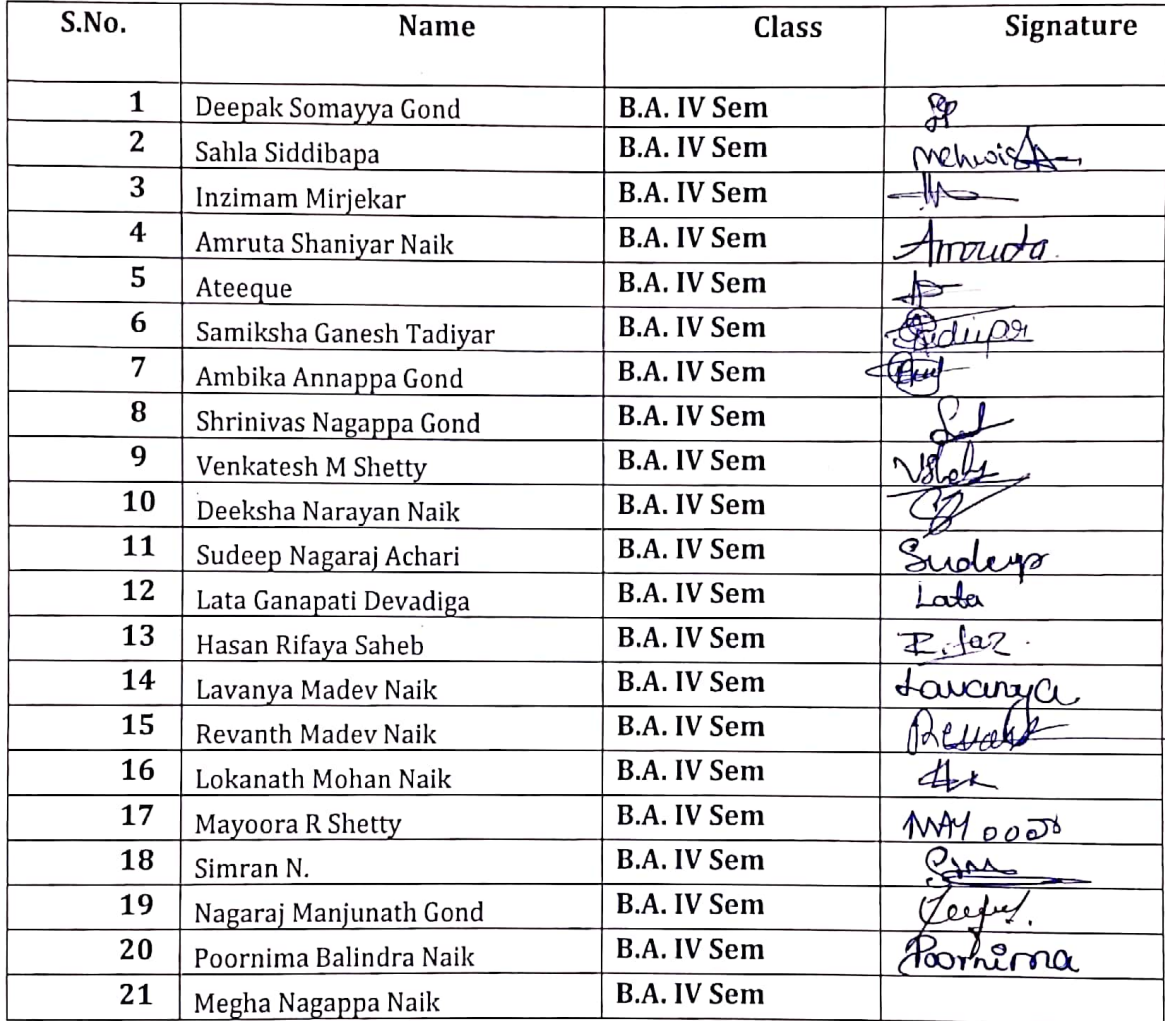 S.No. Name Class Signature
1 Deepak Somayya Gond B.A. IV Sem
2 Sahla Siddibapa B.A. IV Sem
3 Inzimam Mirjekar B.A. IV Sem
4 Amruta Shaniyar Naik B.A. IV Sem Amruta
5 Ateeque B.A. IV Sem
6 Samiksha Ganesh Tadiyar B.A. IV Sem
7 Ambika Annappa Gond B.A. IV Sem
8 Shrinivas Nagappa Gond B.A. IV Sem
9 Venkatesh M Shetty B.A. IV Sem
10 Deeksha Narayan Naik B.A. IV Sem
11 Sudeep Nagaraj Achari B.A. IV Sem Sudeep
12 Lata Ganapati Devadiga B.A. IV Sem Lata
13 Hasan Rifaya Saheb B.A. IV Sem
14 Lavanya Madev Naik B.A. IV Sem Lavanya
15 Revanth Madev Naik B.A. IV Sem
16 Lokanath Mohan Naik B.A. IV Sem
17 Mayoora R Shetty B.A. IV Sem
18 Simran N. B.A. IV Sem
19 Nagaraj Manjunath Gond B.A. IV Sem
20 Poornima Balindra Naik B.A. IV Sem Poornima
21 Megha Nagappa Naik B.A. IV Sem